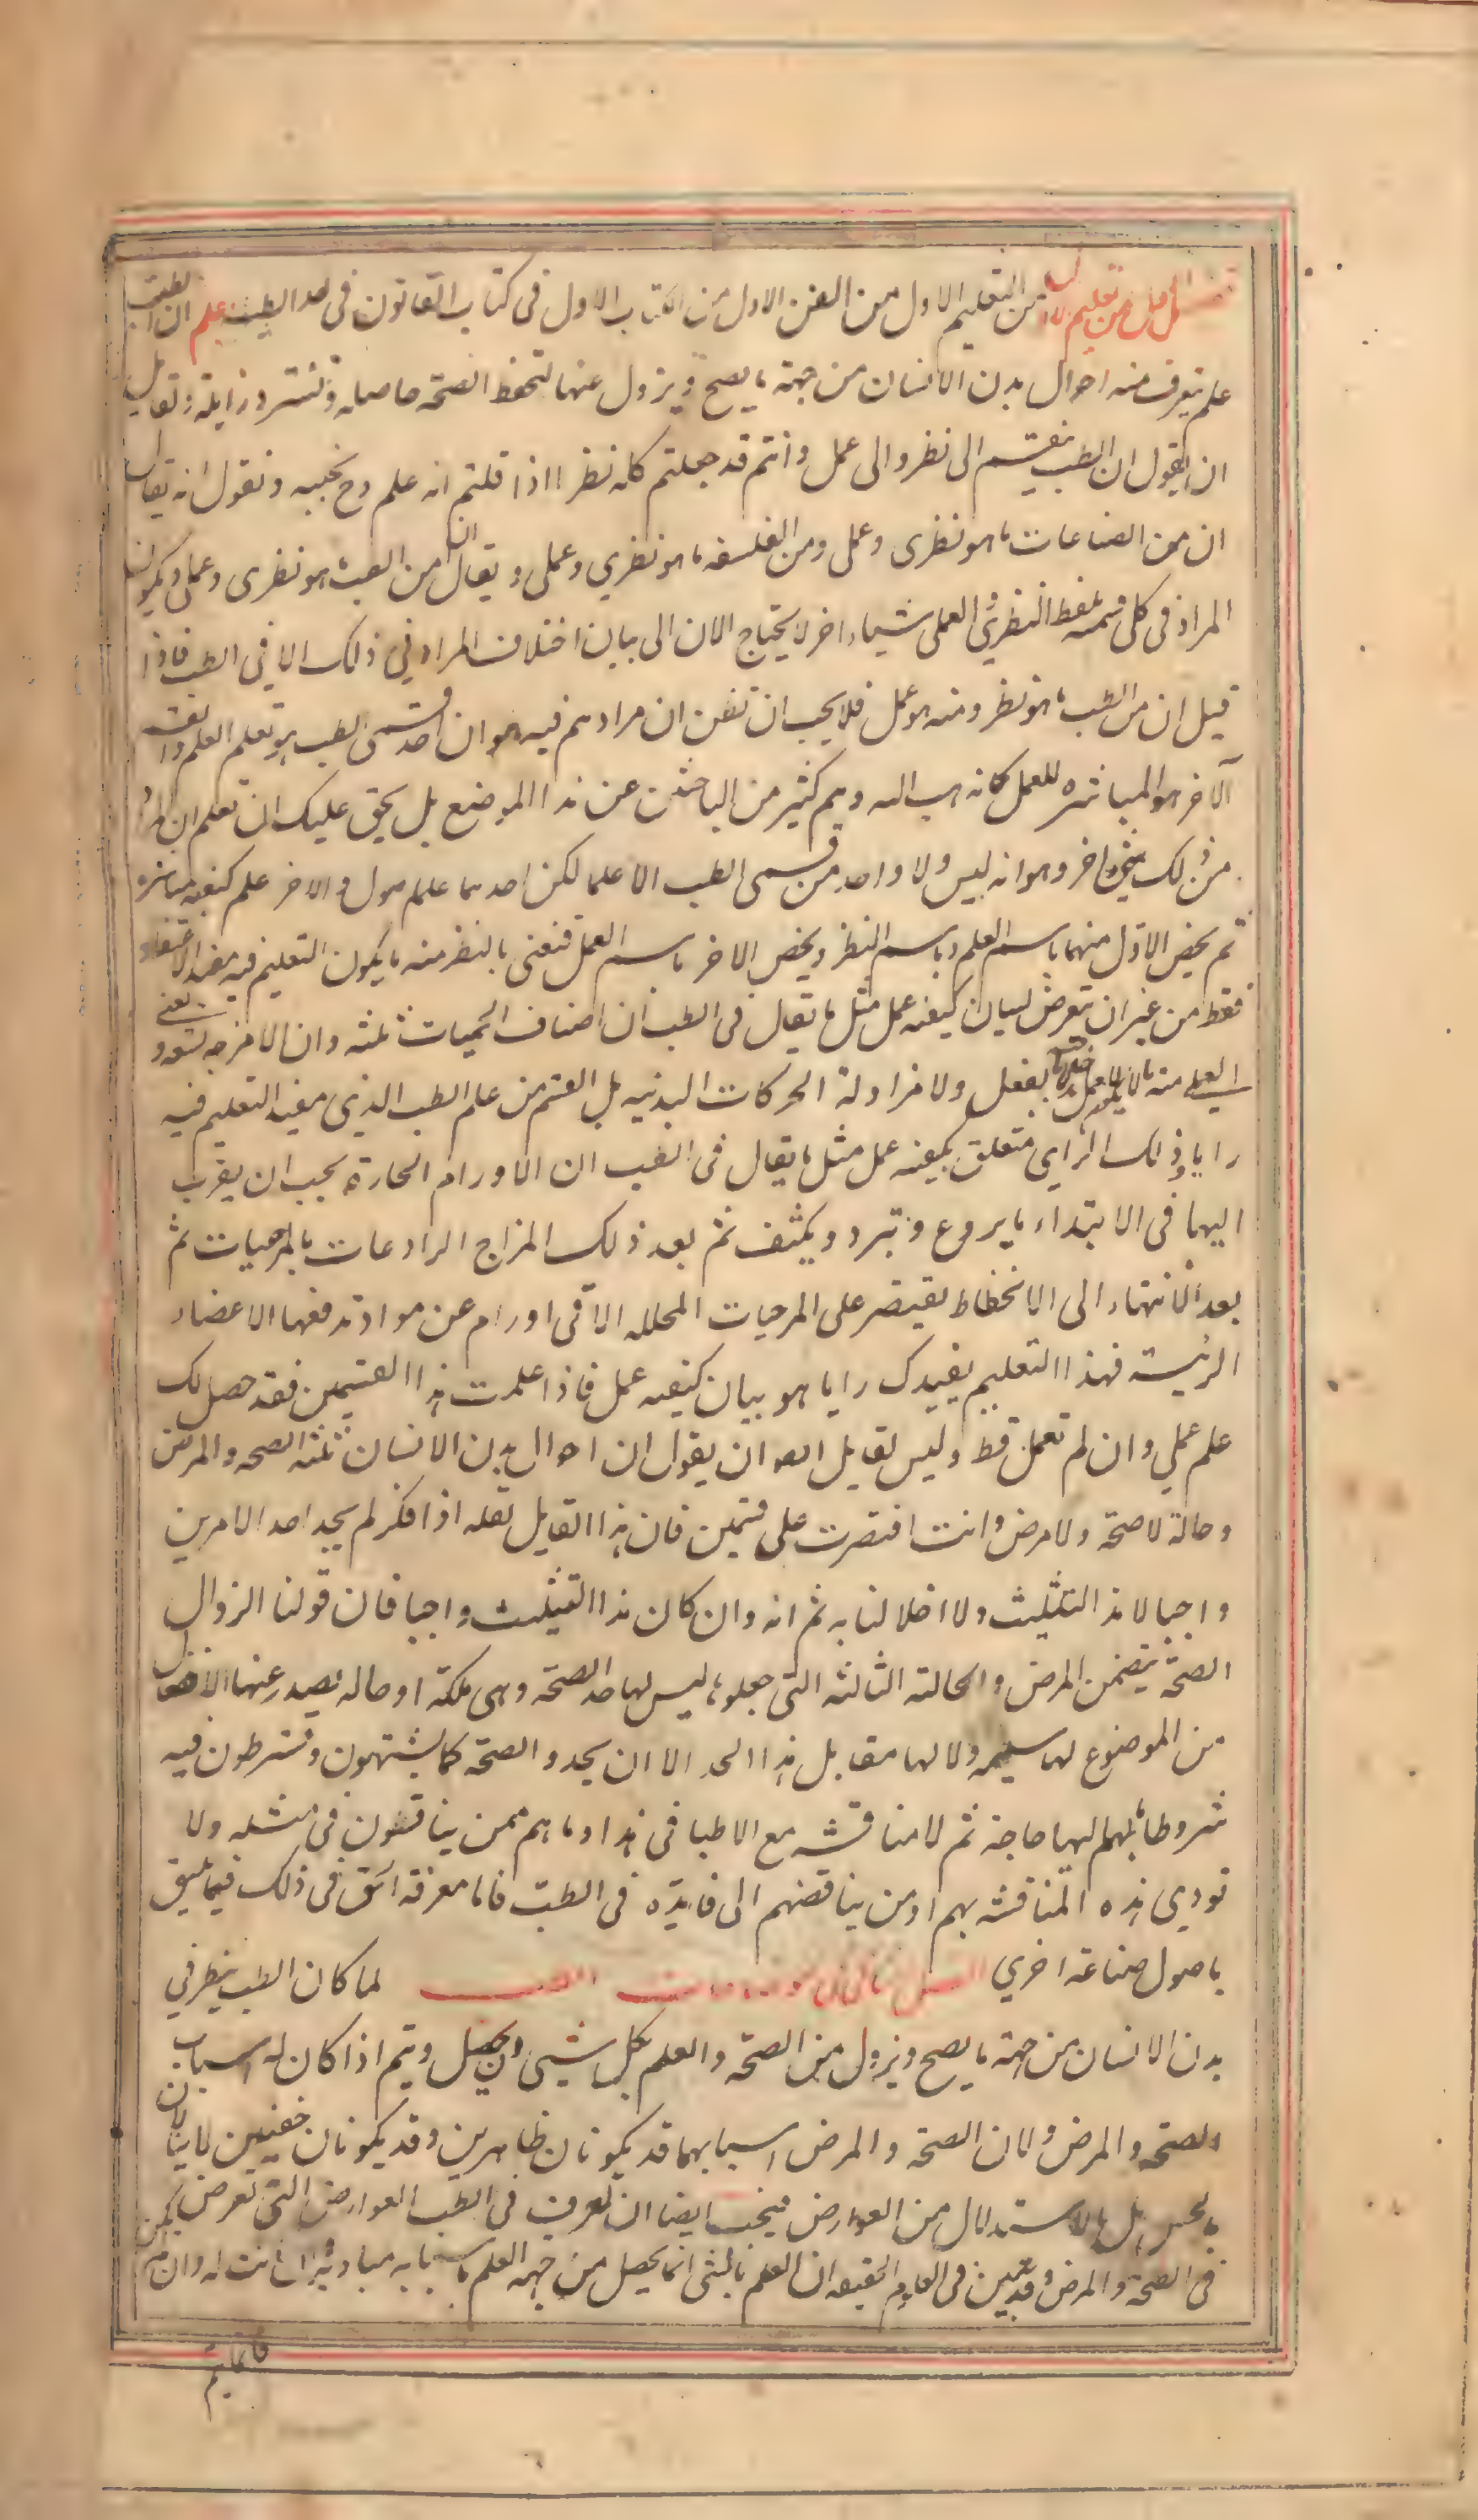 من التعليم الاول من الفن الاول من الكتاب الاول فى كتاب القانون فى حد الطب علم ان الطب
علم يتعرف منه احوال بدن الانسان من جهة ما يصح و يزول عنها لتحفظ الصحة حاصله و تسترد زايلة و لقايل
ان يقول ان الطب ينقسم الى نظر والى عمل وانتم قد جعلتم كله نظرا اذا قلتم انه علم وح نجيبه ونقول انه يقال
ان من الصناعات ما هو نظرى وعملى ومن الفلسفه ما هو نظري وعملى ويقال ان من الطب ما هو نظرى وعملى ويكون
المراد فى كل قسمة بلفظ النظري و العملى شياء اخر لا يحتاج الان الى بيان اختلاف المراد في ذلك الا في الطب فاذا
قيل ان من الطب ما هو نظر ومنه هو عمل فلا يجب ان تظن ان مرادهم فيه هو ان احد قسمى الطب هو تعلم العلم والقسم
الآخر هو المباشره للعمل كانه يهب اليه وهم كثير من الباحثين عن هذا الموضع بل يحق عليك ان تعلم ان المراد
من ذلك شئ اخر وهو انه ليس ولا واحد من قسمى الطب الا علما لكن احدهما علم اصول و الاخر علم كيفيه مباشره
ثم يخص الاول منهما باسم العلم و باسم النظر ويخص الاخر باسم العمل فنعنى بالنظر منه ما يكون التعليم فيه مفيد الاعتقاد
فقط من غير ان يتعرض لبيان كيفيه عمل مثل ما يقال فى الطب ان اصناف الحميات ثلثه وان الامزجه تسعه و نعنى
بالعملى منه لا العمل بالفعل ولا مزاولة الحركات البدنيه بل القسم من علم الطب الذي مفيد التعليم فيه
رايا وذلك الراي متعلق بكيفيه عمل مثل ما يقال فى الطب ان الاورام الحارة يجب ان يقرب
اليها فى الابتداء ما يردع و تبرد و يكثف ثم بعد ذلك المزاج الرادعات بالمرخيات ثم
بعد الانتهاء الى الانحطاط يقتصر على المرخيات المحلله الا فى اورام عن مواد تدفعها الاعضاء
الرئيسة فهذا التعليم يفيدك رايا هو بيان كيفيه عمل فاذا علمت هذا القسمين فقد حصل لك
علم عملي وان لم تعمل قط وليس لقايل ان يقول ان احوال بدن الانسان ثلثه الصحه والمرض
وحالة لا صحة ولا مرض وانت اقتصرت على قسمين فان هذا القايل لعله اذا فكر لم يجد احد الامرين
واجبا لا هذا التثليث ولا اخلالنا به ثم انه وان كان هذا التثليث واجبا فان قولنا الزوال
الصحة يتضمن المرض والحالة الثالثه التى جعلوها ليس لها حد الصحة وهى ملكة او حاله يصدر عنها الافعال
من الموضوع لها سليمه ولا لها مقابل هذا الحد الا ان يحدو الصحة كما يشتهون ويشترطون فيه
شروطا ما بهم اليها حاجة ثم لا مناقشه مع الاطبا فى هذا وما هم ممن يناقشون فى مثله ولا
تودي هذه المناقشه بهم او من يناقضهم الى فايده فى الطب فاما معرفة الحق فى ذلك فيما يليق
باصول صناعة اخري لما كان الطب ينظر في
بدن الانسان من جهة ما يصح ويزول من الصحة والعلم بكل شيئ يحصل ويتم اذا كان له اسباب
الصحه والمرض ولان الصحة والمرض اسبابهما قد يكونان ظاهرين وقد يكونان خفيين لا ينالان
بالحس بل بالاستدلال من العوارض فيجب ايضا ان تعرف فى الطب العوارض التى تعرض
فى الصحة والمرض وقد تبين فى العلوم الحقيقه ان العلم بالشئ انما يحصل من جهه العلم باسبابه ومباديه ان كانت له وان لم يكن